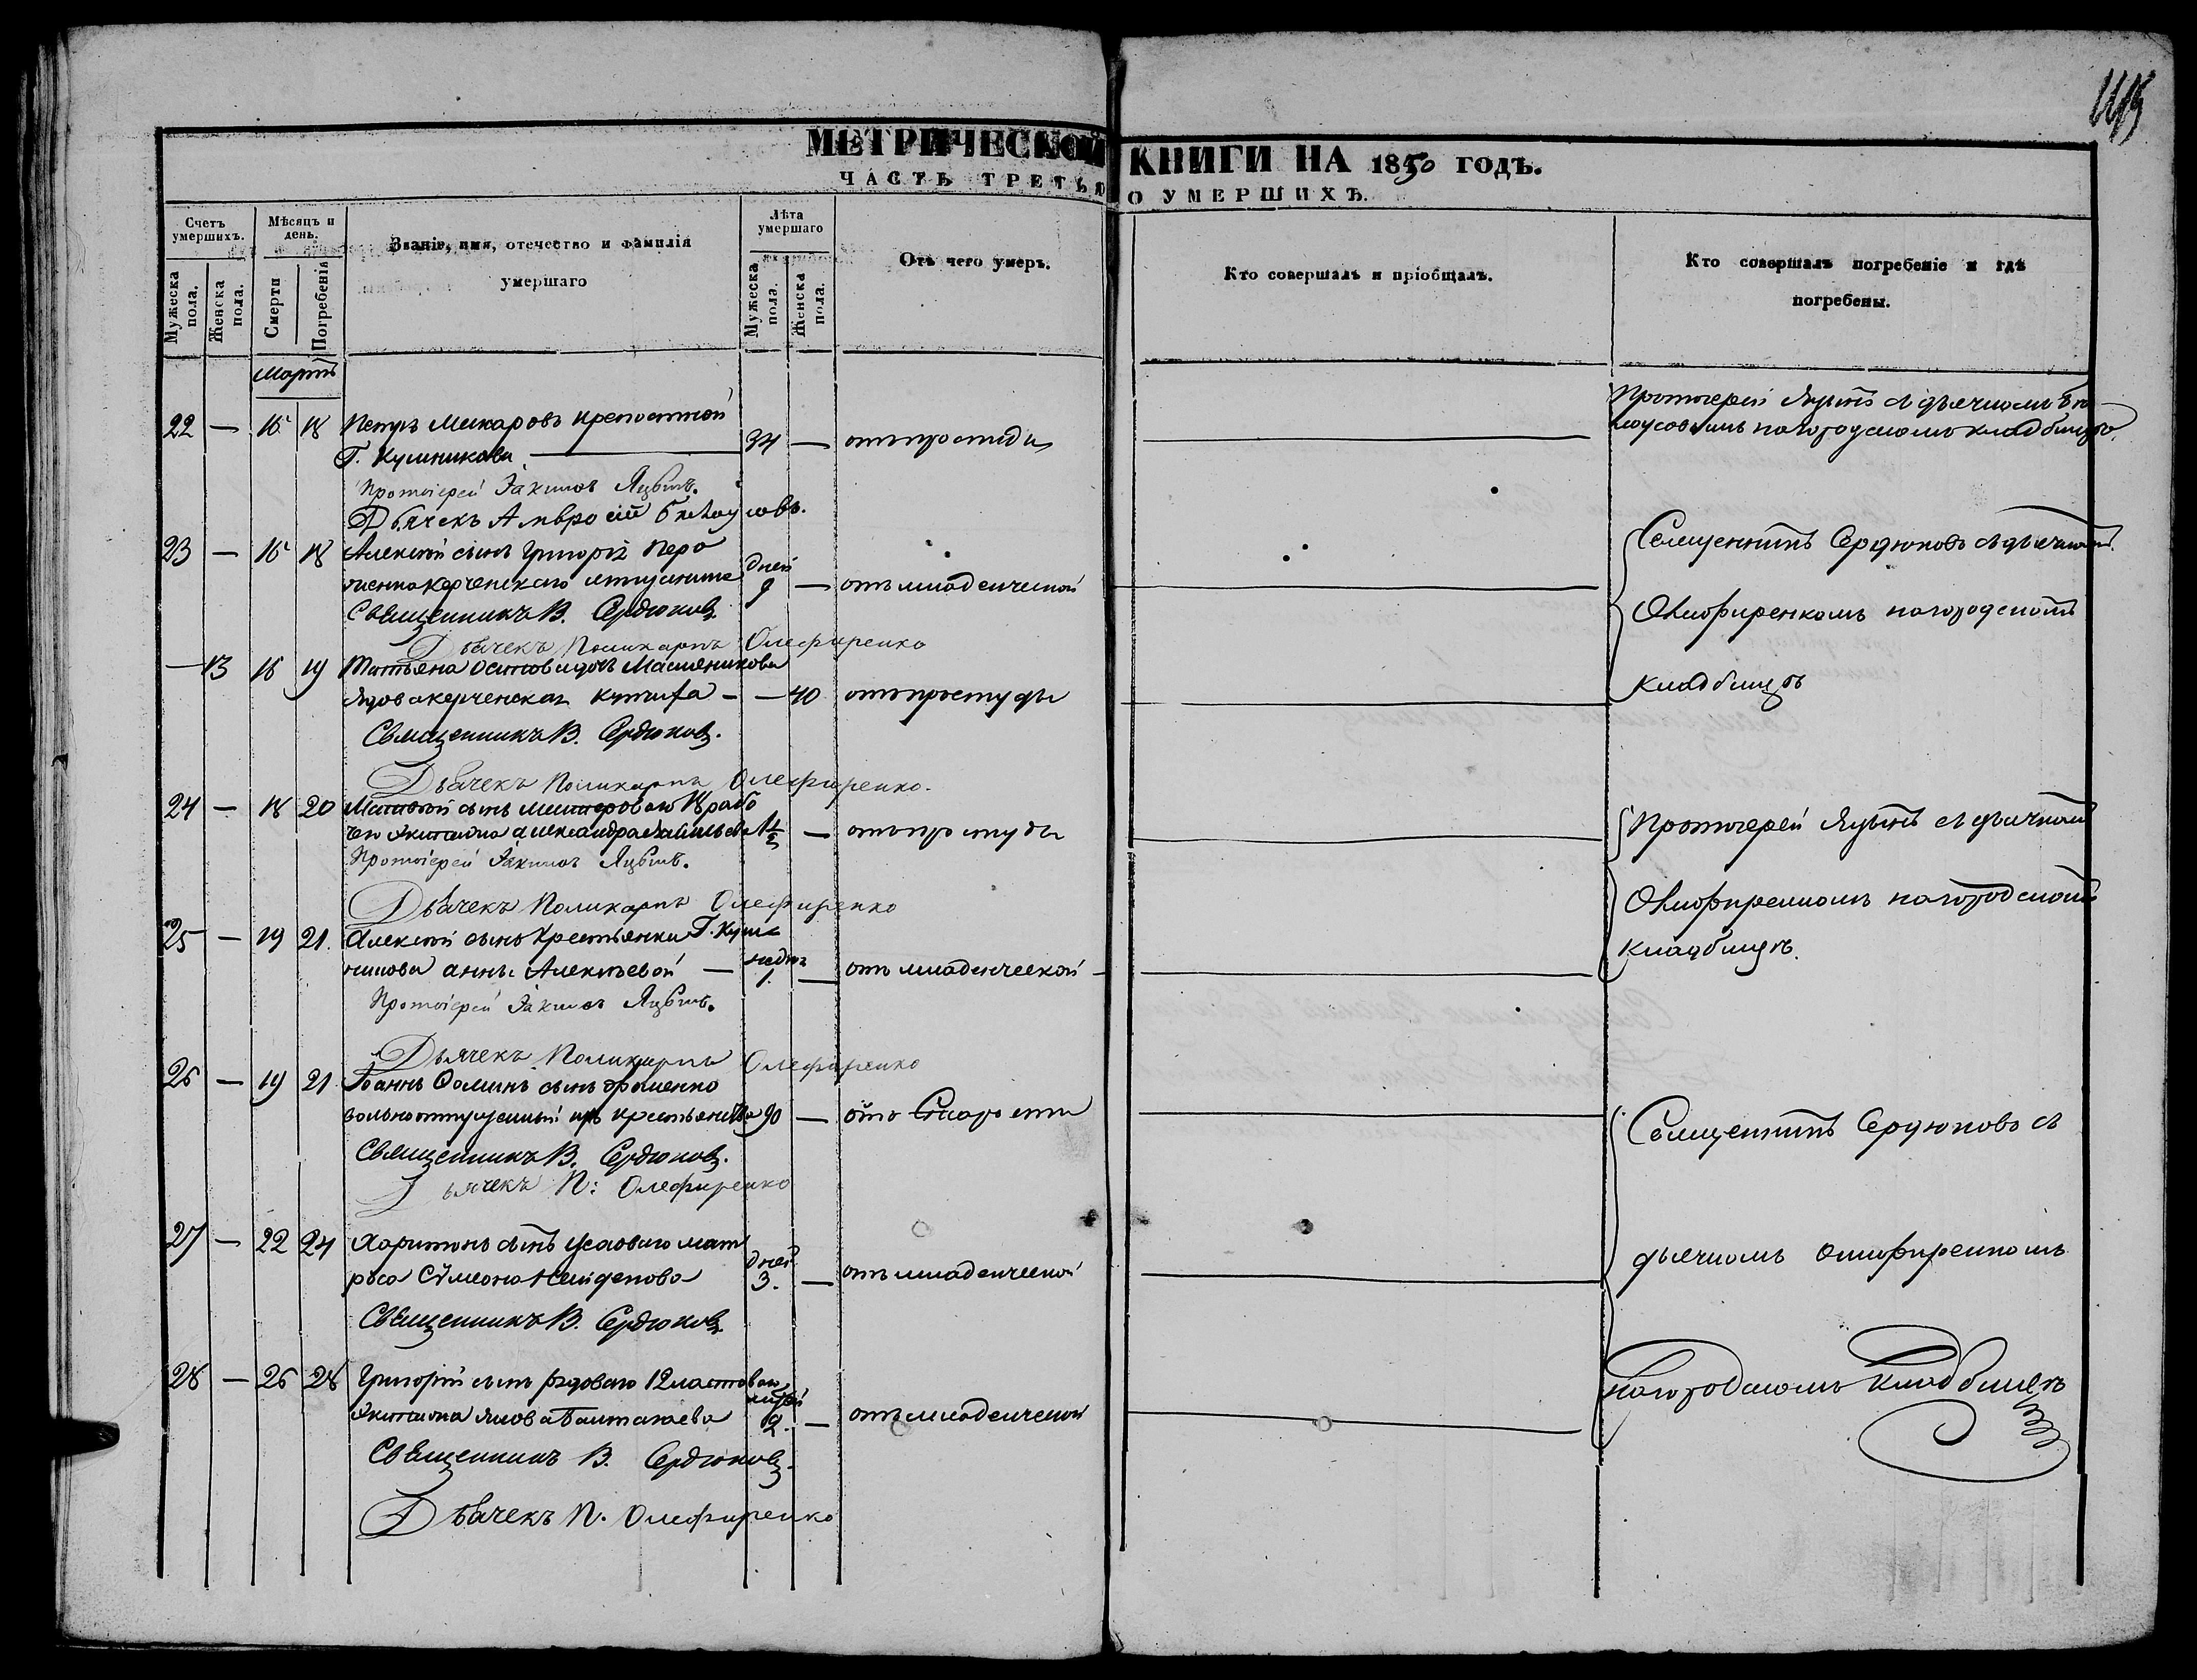 МЕТРИЧЕСКОЙ КНИГИ НА 1850 ГОДЪ.
ЧАСТЬ ТРЕТЬЯ О УМЕРШИХЪ.
Счетъ умершихъ.
Мужеска пола.
Женска пола.
Мѣсяцъ и день.
Смерти
Погребенія
Званіе, имя, отечество и фамилія
умершаго
Лѣта умершаго
Мужеска пола.
Женска пола.
Отъ чего умеръ.
Кто совершалъ и пріобщалъ.
Кто совершалъ погребеніе и гдѣ
погребены.
Мартъ
22 — 16 18 Петръ Макаровъ крепостной
Г. Кушникова — 34 — отъ простуды
Протоіерей съ дьячкомъ
на городскомъ кладбищѣ
Протоіерей Іакимъ
Дьячекъ Амвросій Бѣлоусовъ.
23 — 16 18 Алексѣй сынъ Григорія
керченскаго дней
9 — отъ младенческой
Священникъ Сердюковъ съ дьячкомъ
Священникъ В. Сердюковъ
Олефиренкомъ на городскомъ
Дьячекъ Поликарпъ Олефиренко
— 13 16 19 Татьяна Масленикова
вдова керченская — — 40 отъ простуды
кладбищѣ
Священникъ В. Сердюковъ.
Дьячекъ Поликарпъ Олефиренко.
24 — 18 20 сынъ
экипажа Александра 1½ — отъ простуды
Протоіерей съ дьячкомъ
Протоіерей Іакимъ
Дьячекъ Поликарпъ Олефиренко
Олефиренкомъ на городскомъ
25 — 19 21. Алексѣй сынъ крестьянки Г. Куш
никова Анны Алексѣевой — 1. — отъ младенческой —
кладбищѣ.
Протоіерей Іакимъ
Дьячекъ Поликарпъ Олефиренко
26 — 19 21 Іоаннъ сынъ Фоменко
вольноотпущенный изъ крестьянства 90 — отъ старости
Священникъ Сердюковъ съ
Священникъ В. Сердюковъ.
Дьячекъ П: Олефиренко
27 — 22 24 Харитонъ сынъ мат
роса Сѵмеона дней
3. — отъ младенческой
дьячкомъ Олефиренкомъ
Священникъ В. Сердюковъ
28 — 26 28 Григорій сынъ рядоваго 12 ластоваго
экипажа 2. — отъ младенческой
на городскомъ кладбищѣ
Священникъ В. Сердюковъ.
Дьячекъ П. Олефиренко